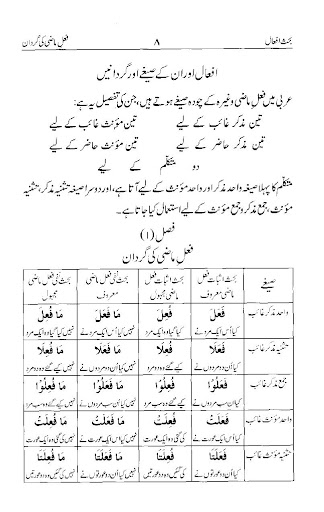 بحث افعال ۸ فعل ماضی کی گردان
افعال اور ان کے صیغے اور گردانیں
عربی میں فعل ماضی وغیرہ کے چودہ صیغے ہوتے ہیں، جن کی تفصیل یہ ہے:
تین مذکر غائب کے لیے تین مؤنث غائب کے لیے
تین مذکر حاضر کے لیے تین مؤنث حاضر کے لیے
دو متکلم کے لیے
متکلم کا پہلا صیغہ واحد مذکر اور واحد مؤنث کے لیے آتا ہے، اور دوسرا صیغہ تثنیہ مذکر، تثنیہ
مؤنث، جمع مذکر و جمع مؤنث کے لیے استعمال کیا جاتا ہے۔
فصل (۱)
فعل ماضی کی گردان
صیغے بحث اثبات فعل ماضی معروف بحث اثبات فعل ماضی مجہول بحث نفی فعل ماضی معروف بحث نفی فعل ماضی مجہول
واحد مذکر غائب فَعَلَ فُعِلَ مَا فَعَلَ مَا فُعِلَ
کیا اُس ایک مرد نے کیا گیا وہ ایک مرد نہیں کیا اُس ایک مرد نے نہیں کیا گیا وہ ایک مرد
تثنیہ مذکر غائب فَعَلَا فُعِلَا مَا فَعَلَا مَا فُعِلَا
کیا اُن دو مردوں نے کیے گئے وہ دو مرد نہیں کیا اُن دو مردوں نے نہیں کیے گئے وہ دو مرد
جمع مذکر غائب فَعَلُوْا فُعِلُوْا مَا فَعَلُوْا مَا فُعِلُوْا
کیا اُن سب مردوں نے کیے گئے وہ سب مرد نہیں کیا اُن سب مردوں نے نہیں کیے گئے وہ سب مرد
واحد مؤنث غائب فَعَلَتْ فُعِلَتْ مَا فَعَلَتْ مَا فُعِلَتْ
کیا اُس ایک عورت نے کی گئی وہ ایک عورت نہیں کیا اُس ایک عورت نے نہیں کی گئی وہ ایک عورت
تثنیہ مؤنث غائب فَعَلَتَا فُعِلَتَا مَا فَعَلَتَا مَا فُعِلَتَا
کیا اُن دو عورتوں نے کی گئیں وہ دو عورتیں نہیں کیا اُن دو عورتوں نے نہیں کی گئیں وہ دو عورتیں